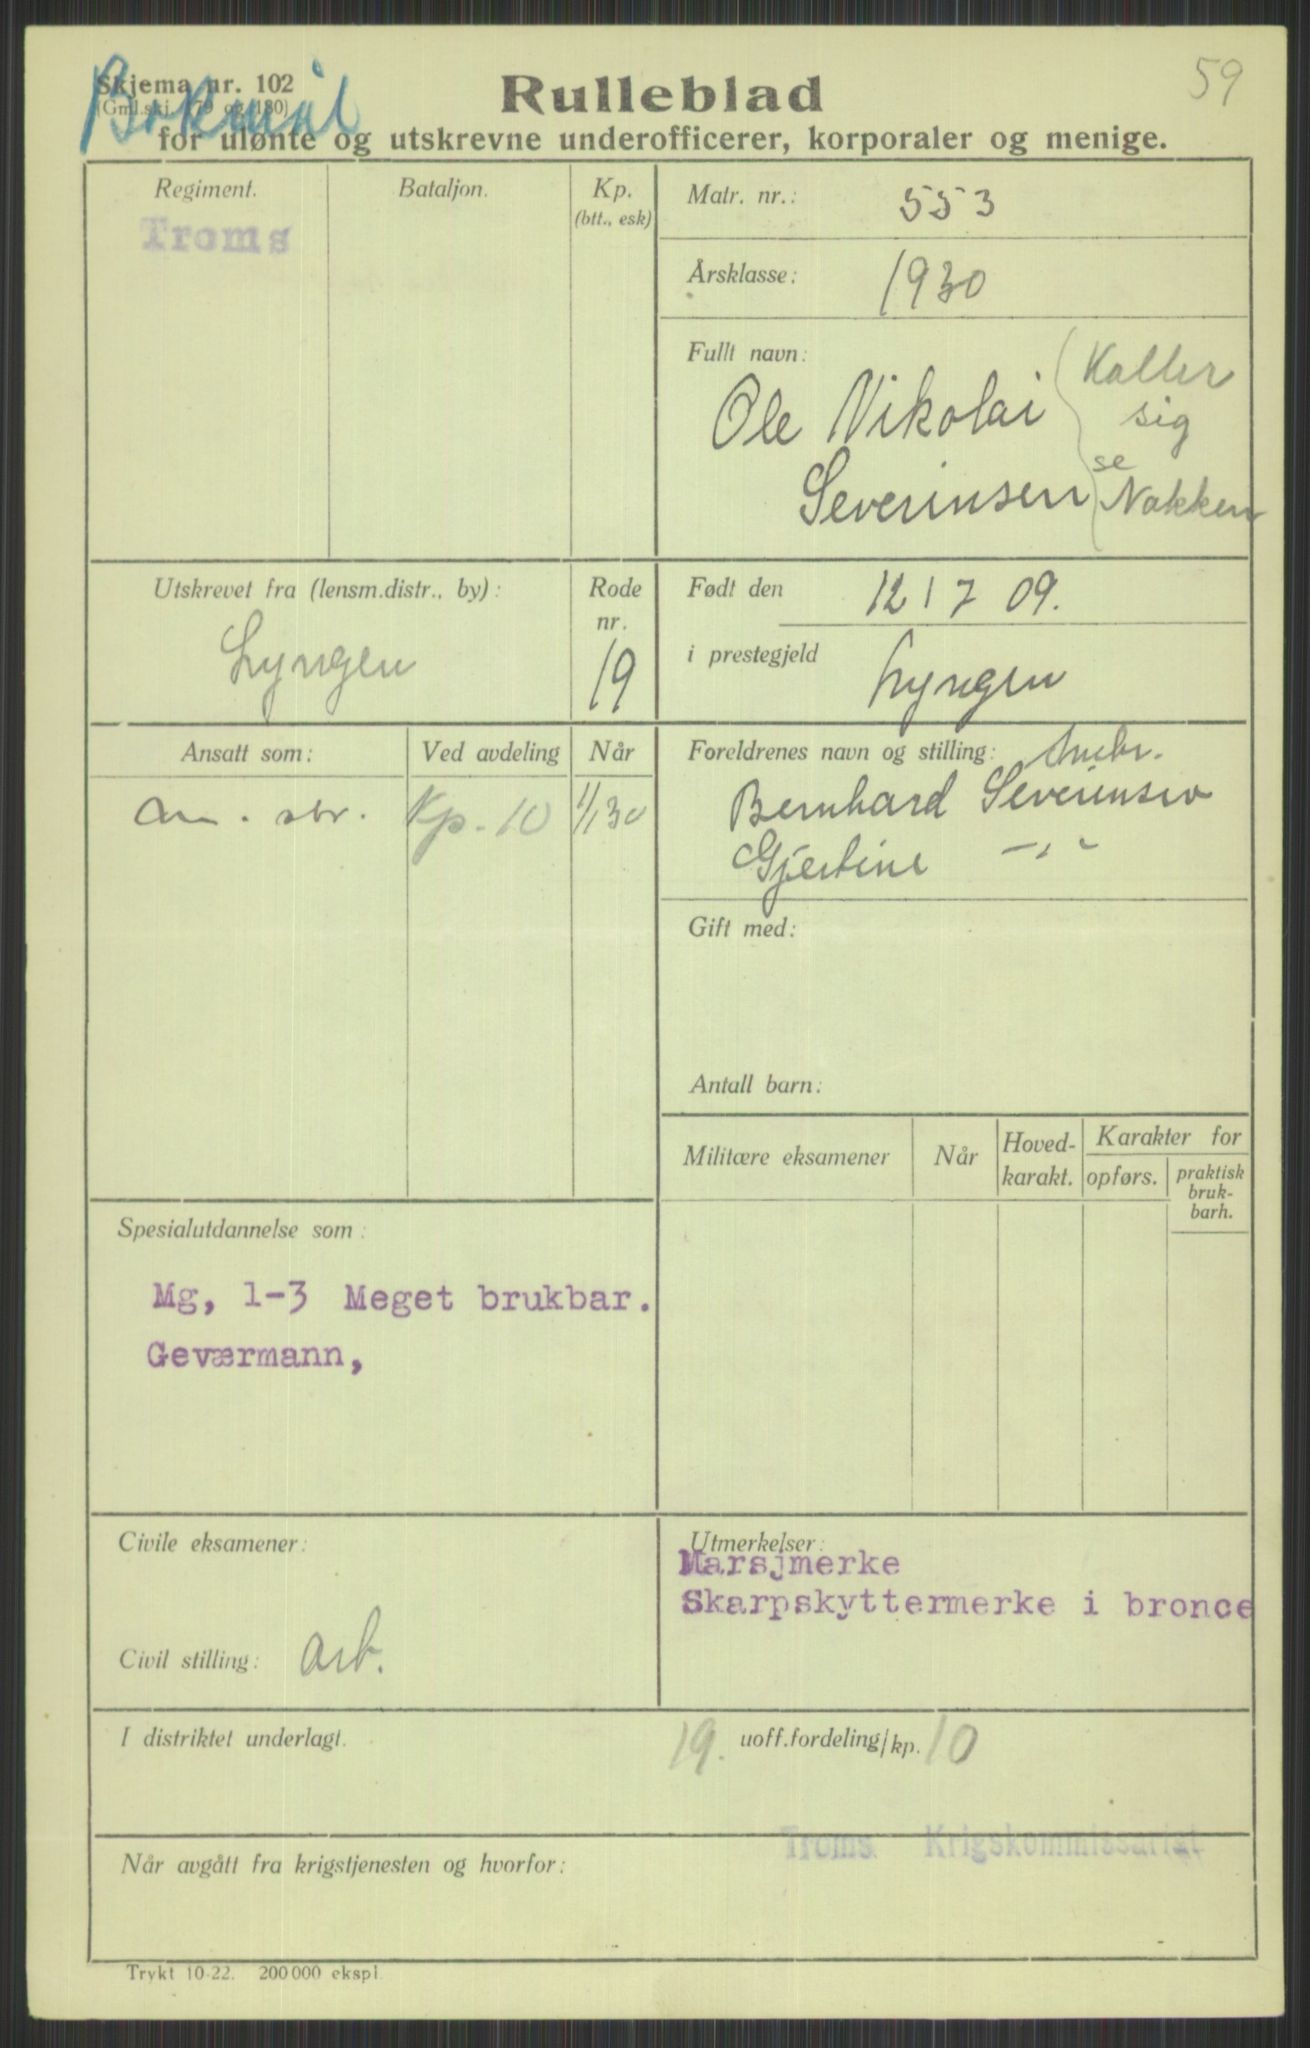 Bokmål
Skjema nr. 102
(Gml.skj. 179 og 180)
59
Rulleblad
for ulønte og utskrevne underofficerer, korporaler og menige.
Regiment.
Troms
Bataljon.
Kp.
(btt., esk)
Matr. nr.: 553
Årsklasse: 1930
Fullt navn:
Ole Nikolai
Severinsen
Kaller
sig
se
Nakken
Utskrevet fra (lensm.distr., by):
Lyngen
Rode
nr.
19
Født den 12 / 7 09.
i prestegjeld Lyngen
Ansatt som: Ved avdeling Når
sbr. Kp. 10 1/1 30
Foreldrenes navn og stilling:
Bernhard Severinsen
Gjertine —„—
Gift med:
Antall barn:
Militære eksamener
Når
Hoved-
karakt.
Karakter for
opførs.
praktisk
bruk-
barh.
Spesialutdannelse som:
Mg, 1-3 Meget brukbar.
Geværmann,
Civile eksamener:
Civil stilling: arb.
Utmerkelser:
Marsjmerke
Skarpskyttermerke i bronce
I distriktet underlagt.
19. uoff.fordeling/kp. 10
Troms Krigskommissariat
Når avgått fra krigstjenesten og hvorfor:
Trykt 10-22. 200 000 ekspl.